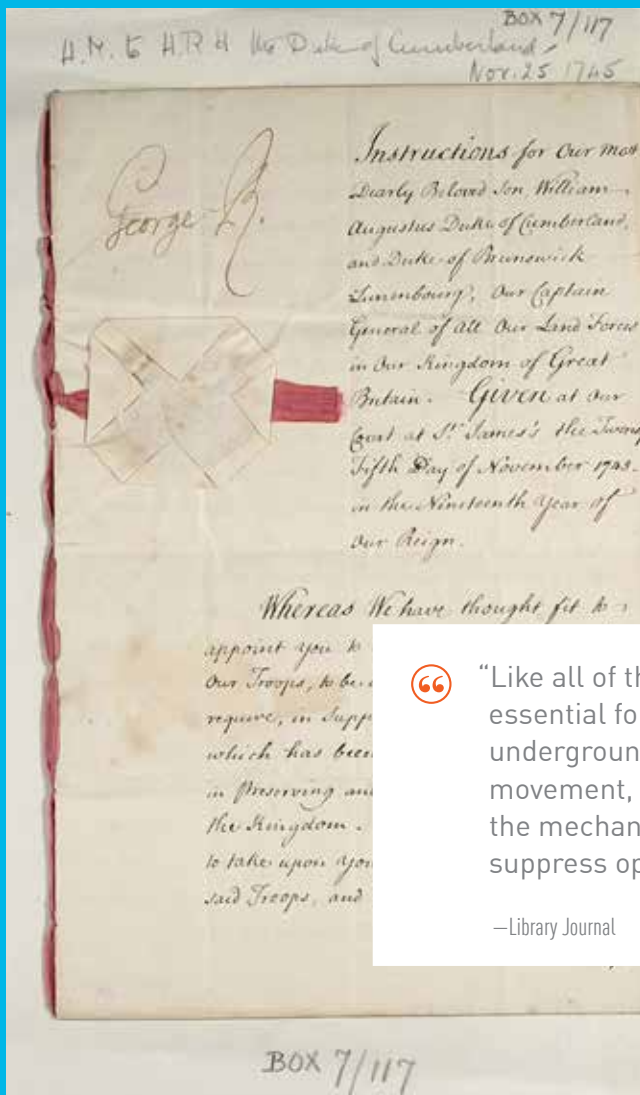 BOX 7/117
H.M. to H.R.H. the Duke of Cumberland
Nov. 25 1745
George R.
Instructions for Our most
Dearly Beloved Son, William
Augustus Duke of Cumberland,
and Duke of Brunswick
Lunenbourg, Our Captain
General of all Our Land Forces
in Our Kingdom of Great
Britain. Given at Our
Court at St. James's the Twenty
Fifth Day of November 1745.
in the Nineteenth Year of
Our Reign.
Whereas We have thought fit to
appoint you to
Our Troops, to be
require, in Supp
which has been
in Preserving and
the Kingdom.
to take upon you
said Troops, and
“Like all of th
essential fo
undergroun
movement,
the mechan
suppress op
—Library Journal
BOX 7/117